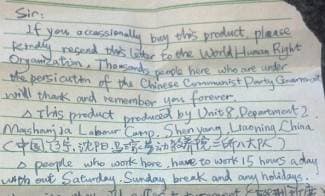 Sir:
If you occassionally buy this product, please
kindly resend this letter to the World Human Right
Organization. Thousands people here who are under
the persicution of the Chinese Communist Party Government
will thank and remember you forever.
△ This product produced by Unit 8, Department 2,
Mashanjia Labour Camp, Shen yang, Liaoning, China
(中国,辽宁,沈阳,马三家劳动教养院二所八大队)
△ people who work here, have to work 15 hours a day
with out Saturday, Sunday break and any holidays.